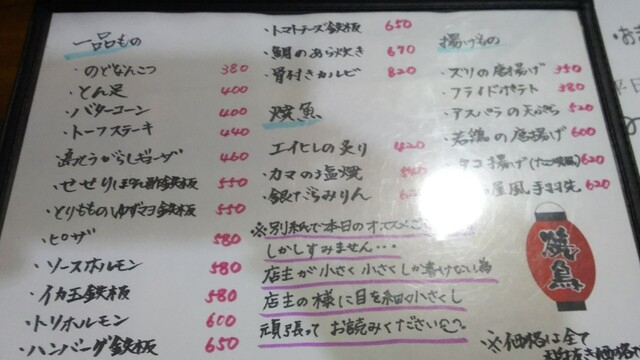 一品もの
・のどなんこつ 380
・とん足 400
・バターコーン 400
・トーフステーキ 440
・青とうがらしギョーザ 460
・せせりぽん酢鉄板 550
・とりもものゆずマヨ鉄板 550
・ピザ 580
・ソースホルモン 580
・イカ玉鉄板 580
・トリホルモン 600
・ハンバーグ鉄板 650
・トマトチーズ鉄板 650
・鯛のあら炊き 670
・骨付きカルビ 820
焼魚
エイヒレの炙り 420
・カマの塩焼 540
・銀だらみりん
※別紙で本日のオススメ
しかしすみません・・・
店主が小さく小さくしか書けない為
店主の様に目を細く小さくし
頑張ってお読みください
揚げもの
・ズリの唐揚げ 350
・フライドポテト 380
・アスパラの天ぷら 520
・若鶏の唐揚げ 600
タコ揚げ 620
屋風手羽先 620
焼鳥
※価格は全て